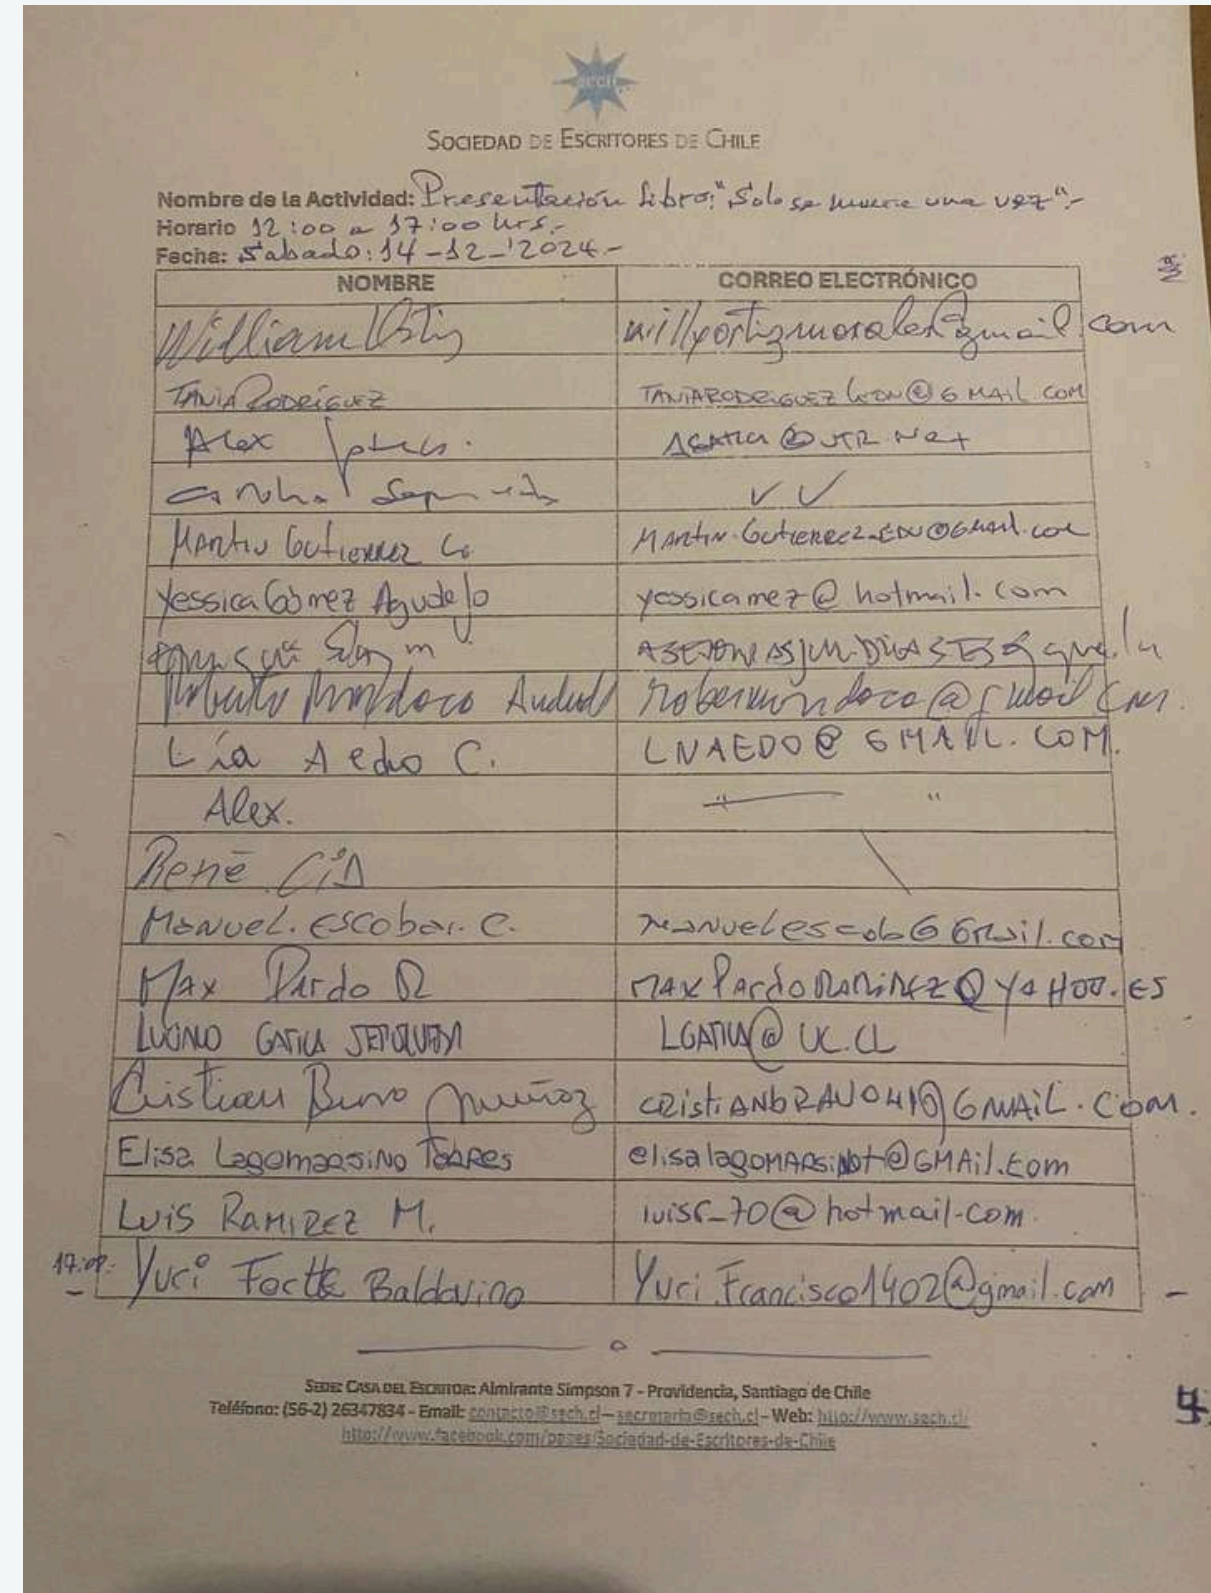 sech
SOCIEDAD DE ESCRITORES DE CHILE
Nombre de la Actividad: Presentación Libro: "Solo se muere una vez".-
Horario 12:00 a 17:00 hrs.-
Fecha: Sabado: 14-12-2024.-
NOMBRE CORREO ELECTRÓNICO
William Ortiz willyortizmorales@gmail.com
TANIA RODRÍGUEZ TANIARODRIGUEZLEON@GMAIL.COM
Alex
Martin Gutierrez G. Martin.Gutierrez.EDU@GMail.com
Yessica Gómez Agudelo yessicamez@hotmail.com
Roberto Mondaca robermondaca@gmail.com
Lía Aedo C. LNAEDO@GMAIL.COM.
Alex. "
René CID
Manuel. Escobar. C. manuelescob@Gmail.com
Max Pardo R MaxPardoRAMiREZ@YAHOO.ES
LUCIANO GATICA SEPULVEDA LGATICA@UC.CL
Cristian Bravo Muñoz CRistiANbRAVO41@GMAiL.COM.
Elisa Lagomarsino Torres elisalagomarsinot@GMAil.com
Luis RAMIREZ M. luisr_70@hotmail.com.
17:00.- Yuri Fortte Baldovino Yuri.Francisco1402@gmail.com
SEDE: CASA DEL ESCRITOR: Almirante Simpson 7 - Providencia, Santiago de Chile
Teléfono: (56-2) 26347834 - Email: contacto@sech.cl – secretaria@sech.cl – Web: http://www.sech.cl/
http://www.facebook.com/pages/Sociedad-de-Escritores-de-Chile